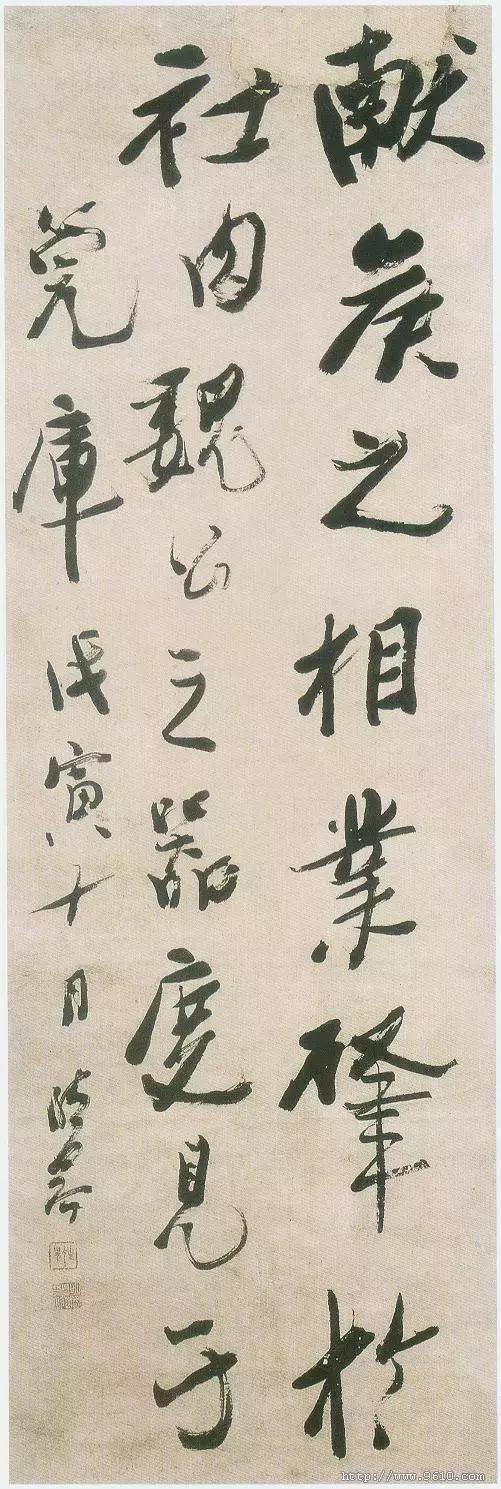 献矦之相業肇於
社肉魏公之器度見于
莞庫戊寅十月
http://www.9610.com